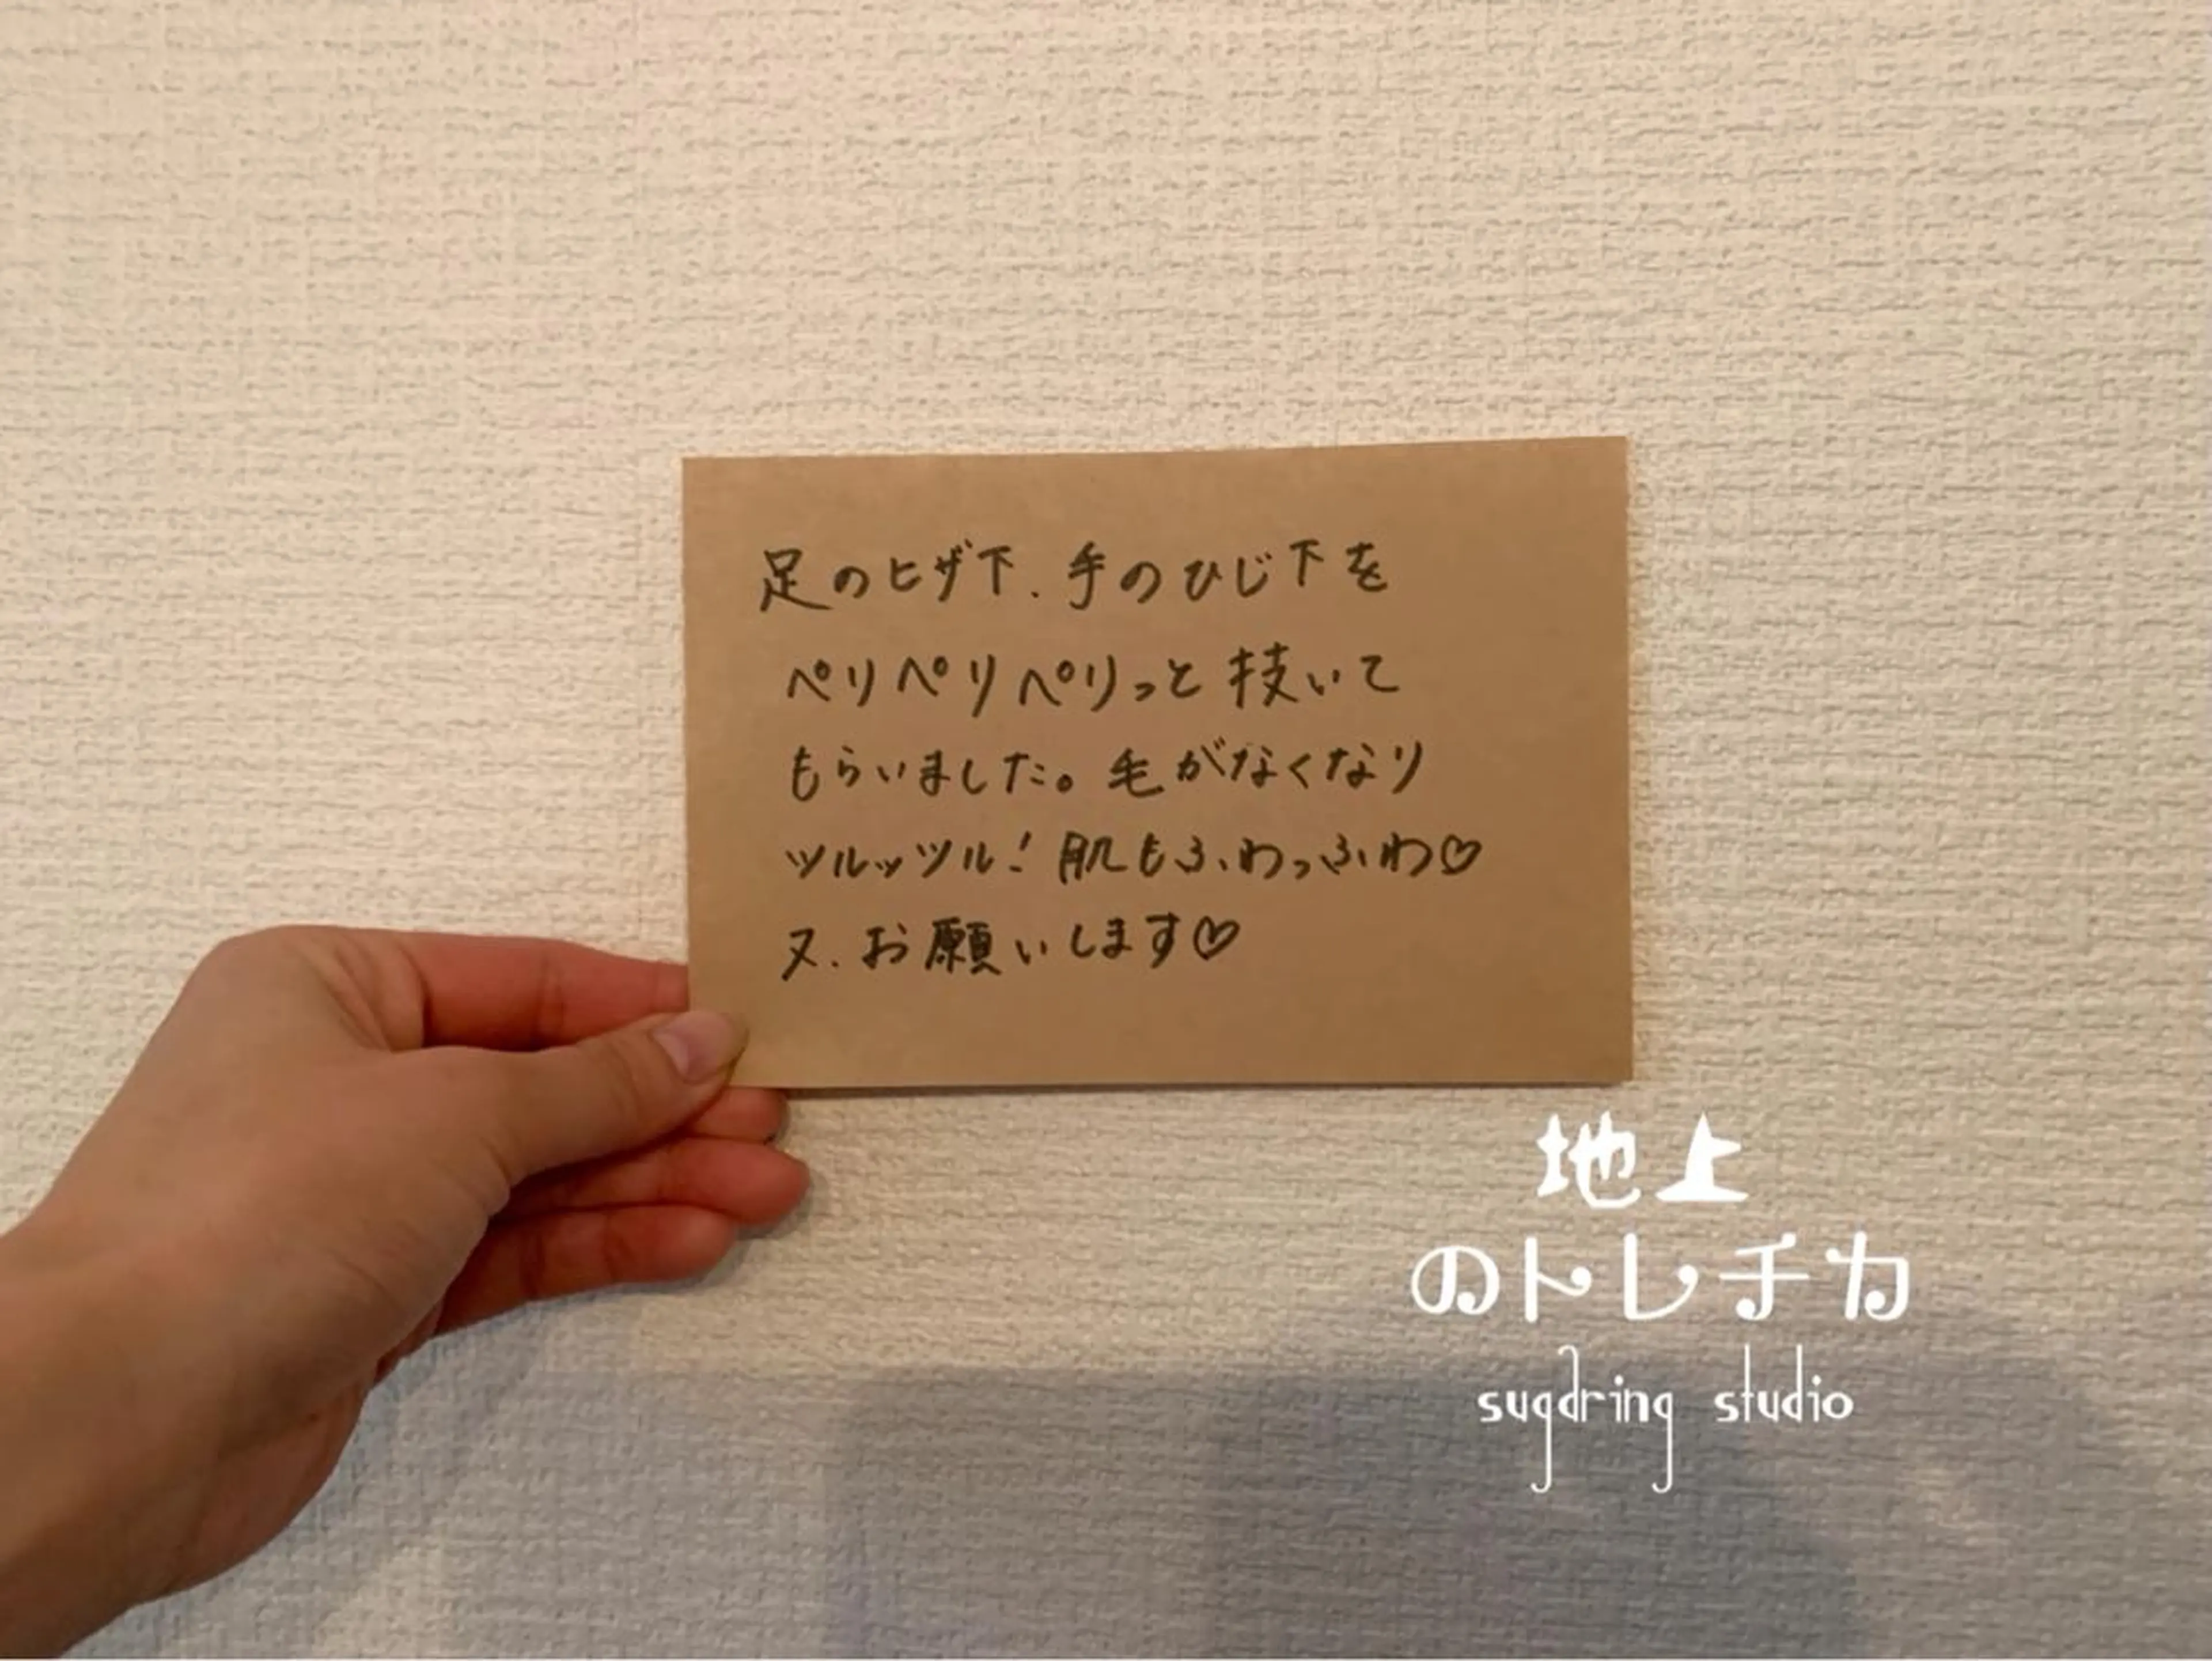 足のヒザ下.手のひじ下を
ペリペリペリっと技いて
もらいました。毛がなくなり
ツルッツル!肌もふわっふわ♡
又.お願いします♡
地上
のトレチカ
sugaring studio